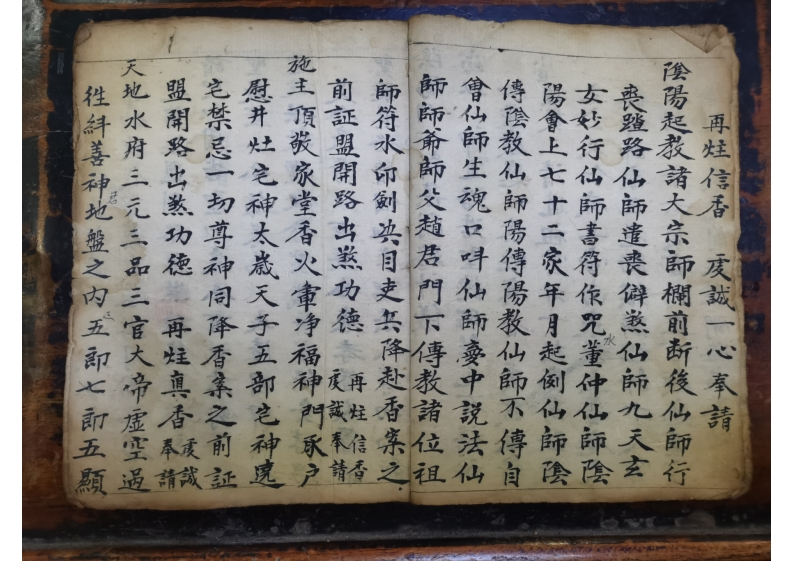 再炷信香　虔誠一心奉請
陰陽起教諸大宗師欄前断後仙師行
喪踏路仙師遣喪僻煞仙師九天玄
女妙行仙師書符作咒水董仲仙師陰
陽會上七十二家年月起例仙師陰
傳陰教仙師陽傳陽教仙師不傳自
會仙師生魂口呌仙師夢中説法仙
師師爺師父趙居門下傳教諸位祖
師符水印劍兵目吏兵降赴香案之
前証盟開路出煞功德　再炷信香虔誠奉請
施主頂敬家堂香火軍净福神門承户
慰井灶宅神太歲天子五部宅神遶
宅禁忌一切尊神同降香案之前証
盟開路出煞功德　再炷真香　虔誠奉請
天地水府三元三品三官大帝虚空過
徃紏善神地盤之内五郎七郎五顯